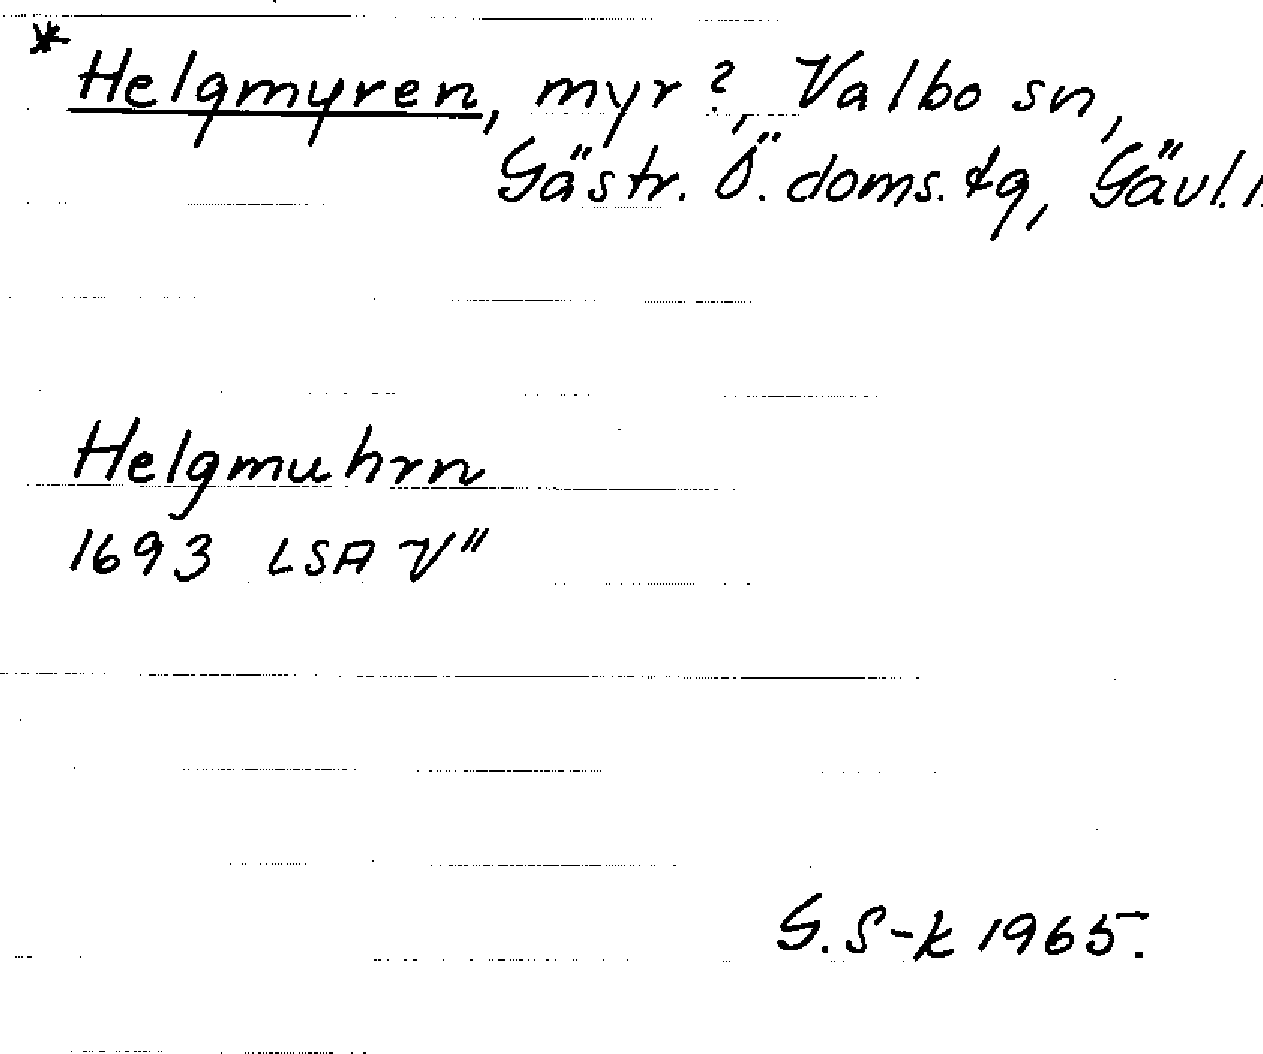 * Helgmyren, myr?, Valbo sn,
Gästr. Ö. doms. tg, Gävl. l.
Helgmuhrn
1693 LSA V"
G. S-k 1965.